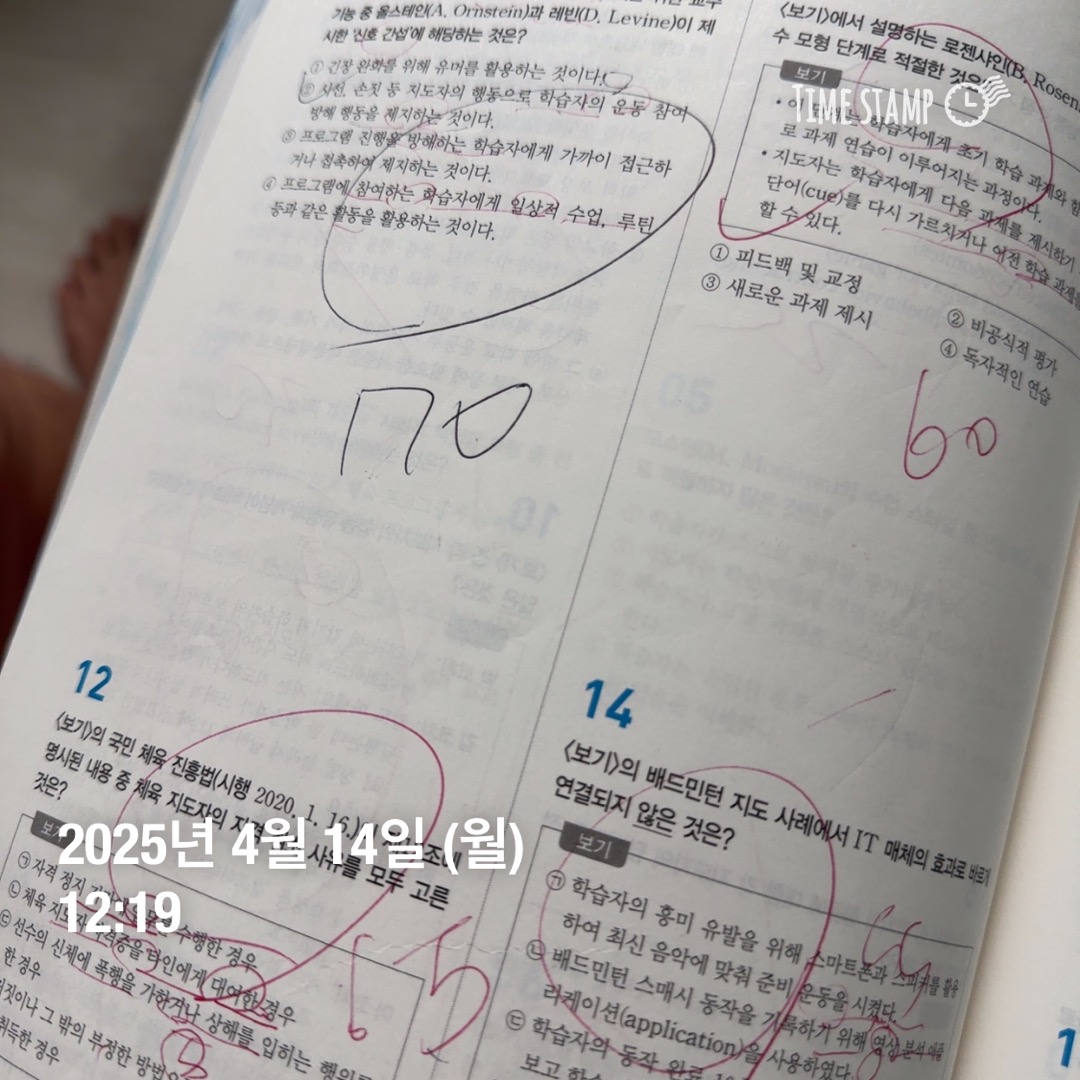 기능 중 올스테인(A. Ornstein)과 레빈(D. Levine)이 제
시한 '신호 간섭'에 해당하는 것은?
① 긴장 완화를 위해 유머를 활용하는 것이다.
② 시선, 손짓 등 지도자의 행동으로 학습자의 운동 참여
방해 행동을 제지하는 것이다.
③ 프로그램 진행을 방해하는 학습자에게 가까이 접근하
거나 접촉하여 제지하는 것이다.
④ 프로그램에 참여하는 학습자에게 일상적 수업, 루틴
등과 같은 활동을 활용하는 것이다.
70
12
〈보기〉의 국민 체육 진흥법(시행 2020. 1. 16.)
명시된 내용 중 체육 지도자의 사유를 모두 고른
것은?
㉠ 자격 정지 수행한 경우
㉡ 체육 지도자 자격증을 타인에게 대여한 경우
㉢ 선수의 신체에 폭행을 가하거나 상해를 입히는 행위를
한 경우
그 밖의 부정한 방법
취득한 경우
〈보기〉에서 설명하는 로젠샤인(B. Rosen
수 모형 단계로 적절한 것은
보기
TIME STAMP
학습자에게 초기 학습 과제와 함
로 과제 연습이 이루어지는 과정이다.
• 지도자는 학습자에게 다음 과제를 제시하기
단어(cue)를 다시 가르치거나 이전 학습 과제를
할 수 있다.
① 피드백 및 교정
② 비공식적 평가
③ 새로운 과제 제시
④ 독자적인 연습
60
14
〈보기〉의 배드민턴 지도 사례에서 IT 매체의 효과로 바르게
연결되지 않은 것은?
보기
㉠ 학습자의 흥미 유발을 위해 스마트폰과 스피커를 활용
하여 최신 음악에 맞춰 준비 운동을 시켰다.
㉡ 배드민턴 스매시 동작을 기록하기 위해 영상 분석 애플
리케이션(application)을 사용하였다.
㉢ 학습자의 동작 완료
보고
2025년 4월 14일 (월)
12:19